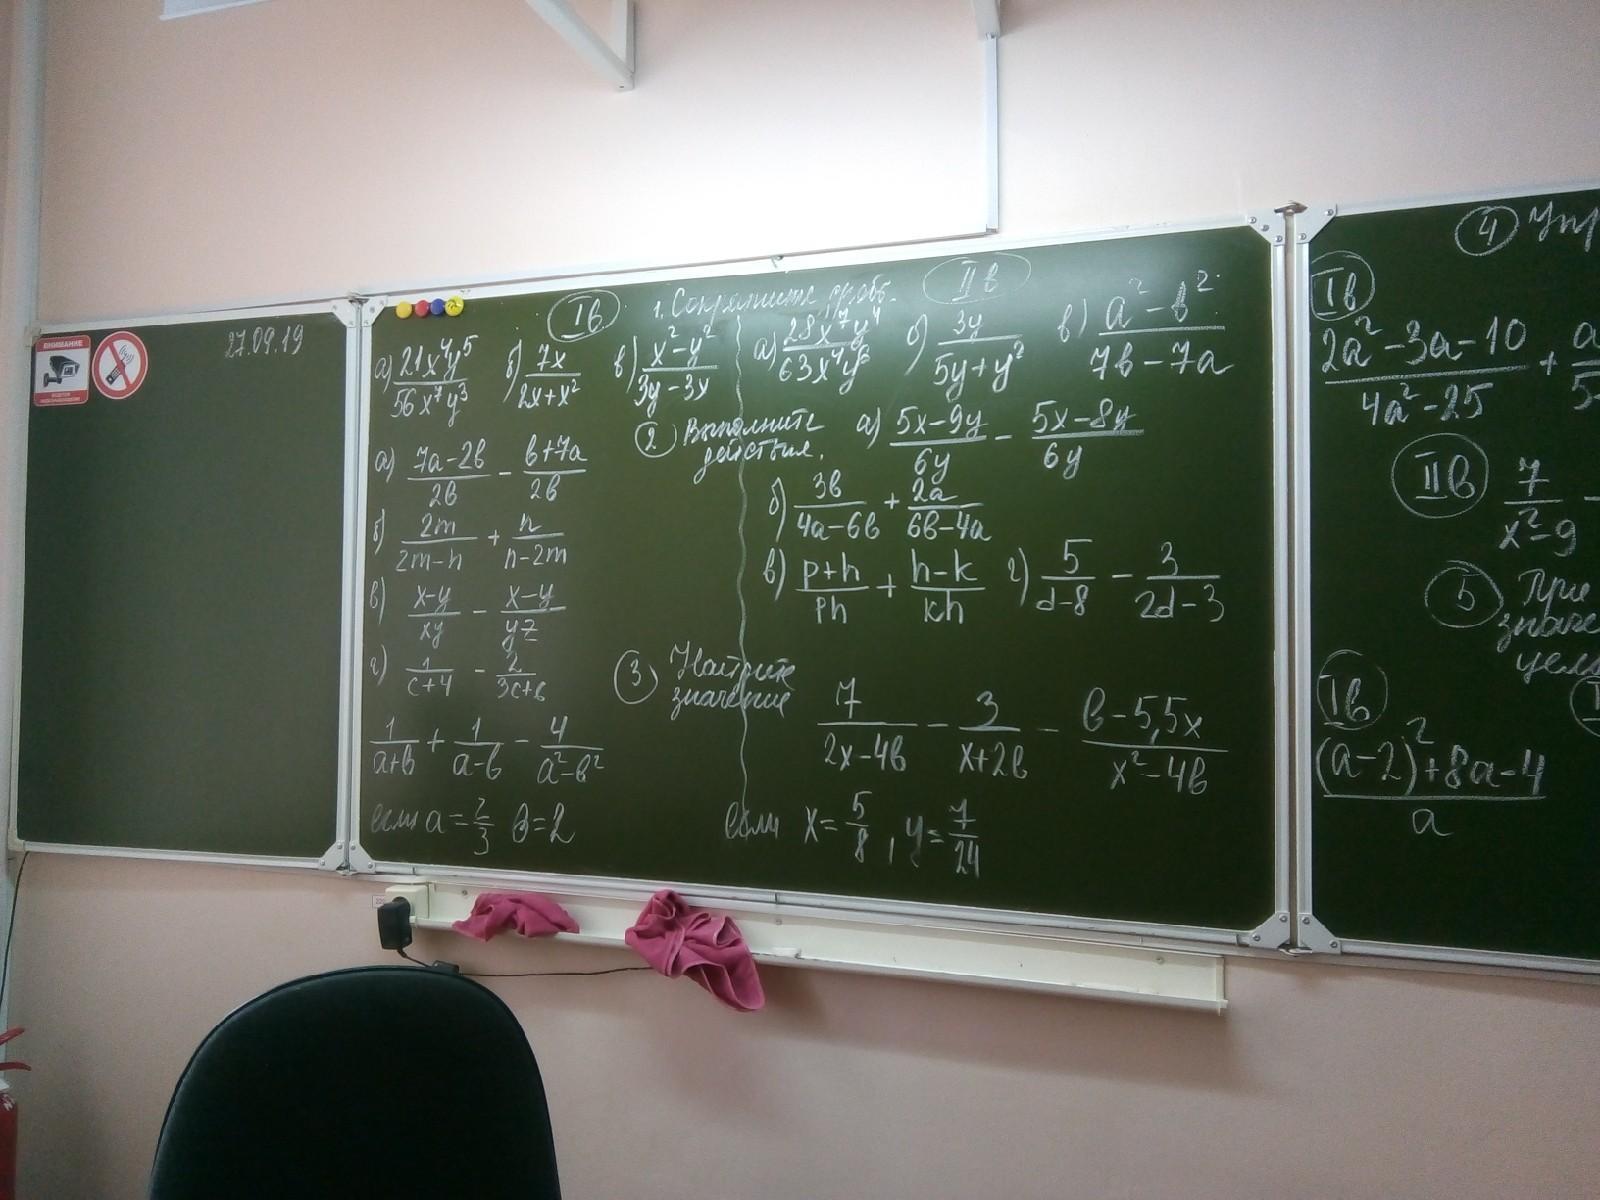 ВНИМАНИЕ
27.09.19
Iв
1. Сократите дробь.
IIв
а) 21x⁴y⁵ / 56x⁷y³ б) 7x / 2x+x² в) x²-y² / 3y-3x
а) 28x⁷y⁴ / 63x⁴y³ б) 3y / 5y+y² в) a²-b² / 7b-7a
2 Выполните действия.
а) 7a-2b / 2b - b+7a / 2b
б) 2m / 2m-n + n / n-2m
в) x-y / xy - x-y / yz
г) 1 / c+4 - 2 / 3c+b
а) 5x-9y / 6y - 5x-8y / 6y
б) 3b / 4a-6b + 2a / 6b-4a
в) p+h / ph + h-k / kh г) 5 / d-8 - 3 / 2d-3
3 Найдите значение
1 / a+b + 1 / a-b - 4 / a²-b²
если a = 2/3 b=2
7 / 2x-4b - 3 / x+2b - b-5,5x / x²-4b
если x = 5/8, y = 7/24
4 Упр
Iв
2a²-3a-10 / 4a²-25 + a / 5-
IIв 7 / x²-9 -
5 При
значе
целы
Iв
(a-2)²+8a-4 / a